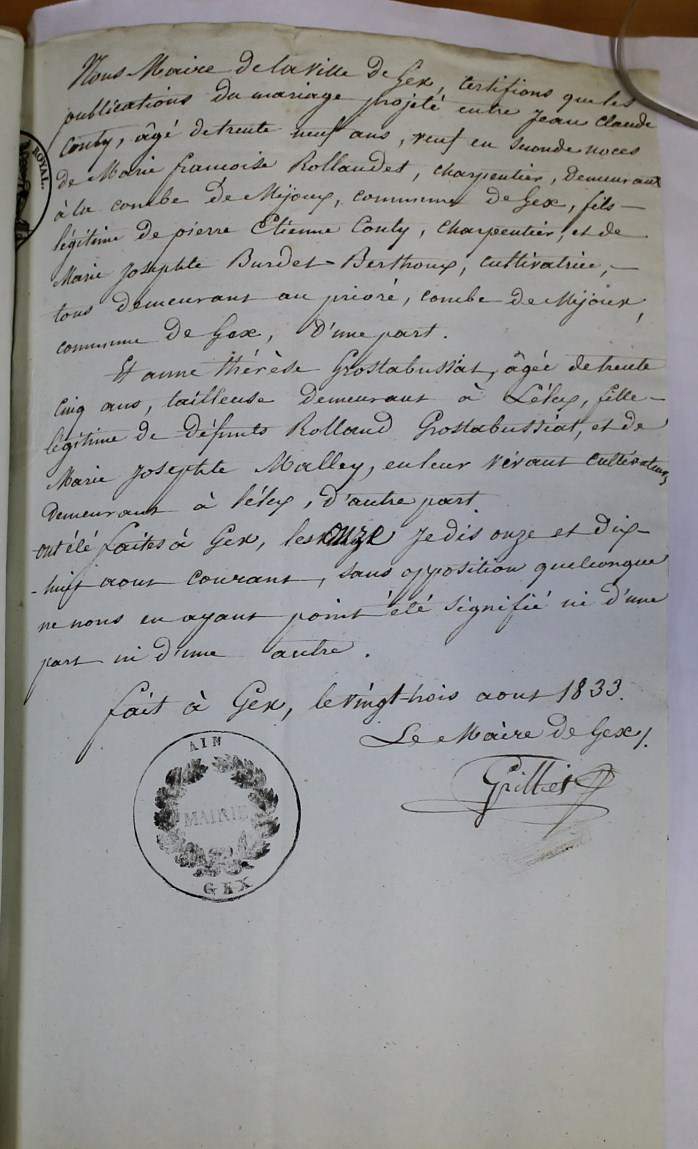 ROYAL.
Nous Maire de la ville de Gex, Certifions que les
publications du mariage projeté entre Jean Claude
Conty, âgé de trente neuf ans, veuf en seconde noces
de Marie françoise Rollandet, charpentier, demeurant
à la combe de Mijoux, commune de Gex, fils
légitime de pierre Etienne Conty, charpentier, et de
Marie Josephte Burdet-Berthoux, cultivatrice,
tous demeurant au prioré, combe de Mijoux,
commune de Gex, d'une part.
Et anne thérèse Grostabussiat, âgée de trente
Cinq ans, tailleuse demeurant à Lélex, fille
légitime de défunts Rolland Grostabussiat, et de
Marie Josephte Malley, en leur vivant cultivateurs
demeurant à Lélex, d'autre part
ont été faites à Gex, les onze Je dis onze et dix-
-huit aout courant, sans opposition quelconque
ne nous en ayant point été signifié ni d'une
part ni d'une autre.
fait à Gex, le vingt-trois aout 1833.
Le Maire de Gex
Grillet
AIN
MAIRIE
GEX